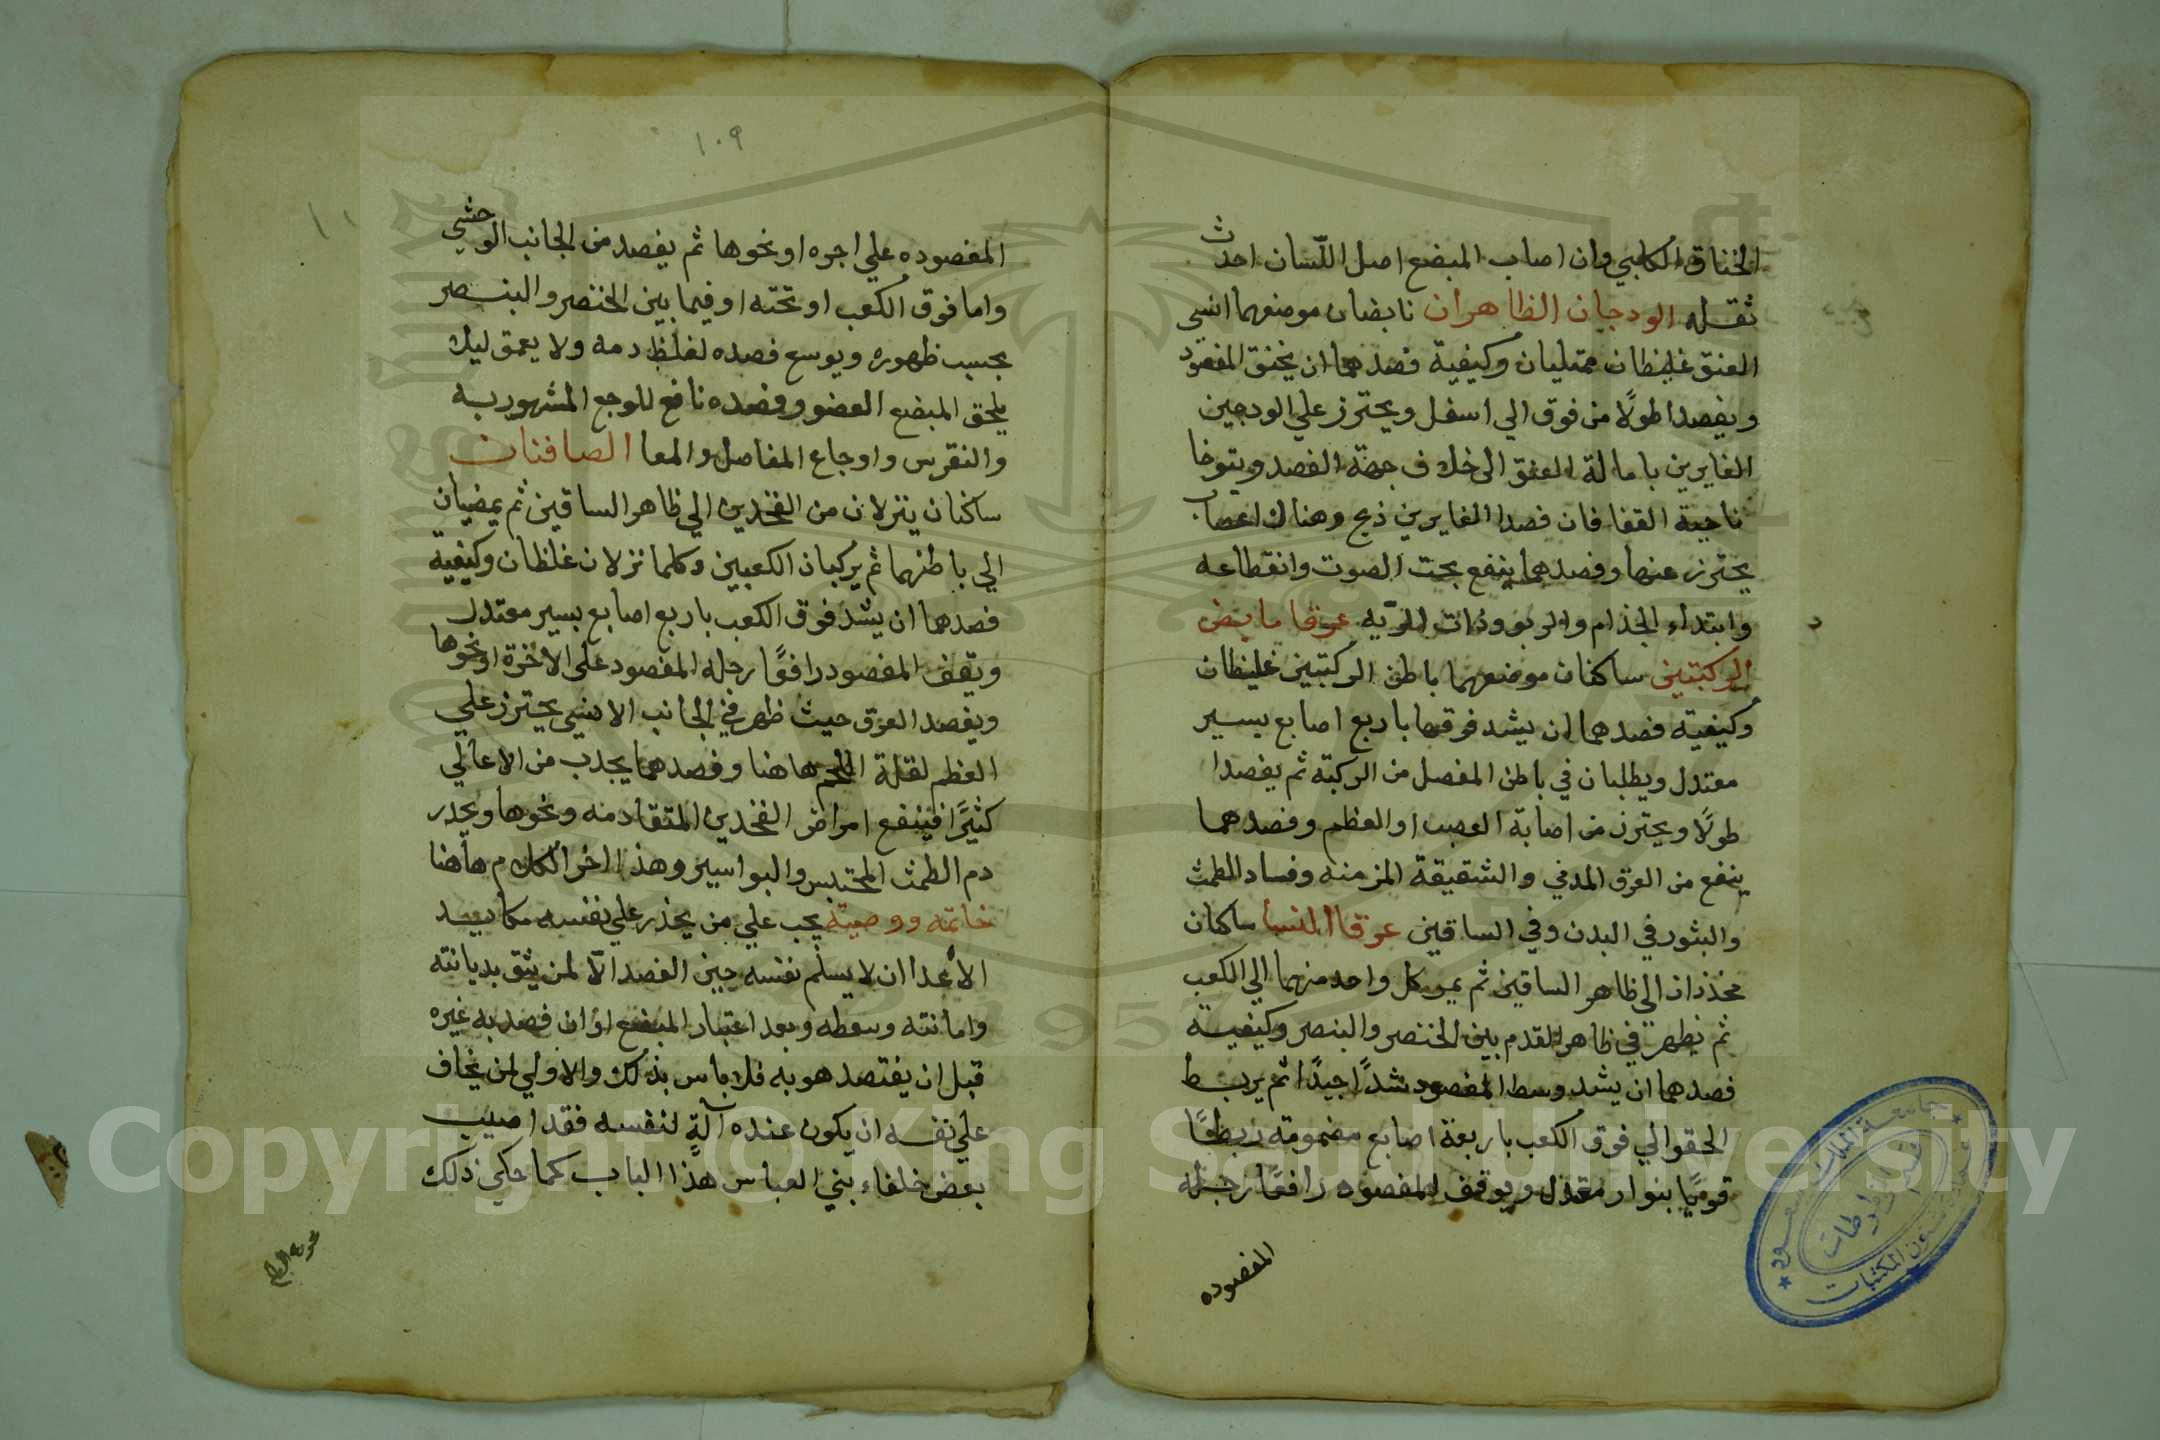 الخناق الكلبي وان اصاب المبضع اصل اللّسان احدث
ثقله الودجان الظاهران نابضان موضعهما انسي
العنق غليظان ممتليان وكيفية فصدهما ان يخنق المفصود
ويفصدا طولًا من فوق الي اسفل ويحترز علي الودجين
الغايرين بامالة العنق الى خلاف جهة الفصد ويتوخا
ناحية القفا فان فصدا الغايرين ذبح وهناك اعصاب
يحترز عنها وفصدهما ينفع بحت الصوت وانقطاعه
وابتداء الجذام والربو وذات الريه عرقا مابض
الركبتين ساكنان موضعهما باطن الركبتين غليظان
وكيفيته فصدهما ان يشد فوقهما باربع اصابع بسير
معتدل ويطلبان في باطن المفصل من الركبته ثم يفصدا
طولًا ويحترز من اصابة العصب او العظم وفصدهما
ينفع من العرق المدني والشقيقة المزمنه وفساد الطمث
والبثور في البدن وفي الساقين عرقا النسا ساكنان
ياخذان الي ظاهر الساقين ثم يمر كل واحد منهما الي الكعب
ثم يظهر في ظاهر القدم بين الخنصر والبنصر وكيفيـة
فصدهما ان يشد وسط المفصود شدًا جيدًا ثم يربـط
الحقو الي فوق الكعب باربعة اصابع مضمومة ربطًا
قوميًا بنوار معتدل ويوقف المفصود رافعًا رجـله
المفصوده
١٠٩
المفصوده علي اجره او نحوها ثم يفصد من الجانب الوحشي
واما فوق الكعب او تحته او فيما بين الخنصر والبنـصر
بحسب ظهوره ويوسع فصده لغلظ دمه ولا يعمق ليلا
يلحق المبضع العضو وفصده نافع للوجع المشهور به
والنقرس واوجاع المفاصل والمعا الصافنان
ساكنان ينزلان من الفخدين الي ظاهر الساقين ثم يمضيان
الي باطنهما ثم يركبان الكعبين وكلما نزلا ن غلظان وكيفية
فصدهما ان يشد فوق الكعب باربع اصابع بسير معتدل
ويقف المفصود رافعًا رجله المفصود علي الاخرة او نحوها
ويفصد العرق حيث ظهر في الجانب الانسي يحترز علي
العظم لقلة اللحم هاهنا وفصدهما يجذب من الاعالي
كثيرًا فينفع امراض الفخدين المتقادمه ونحوها ويحدر
دم الطمث المحتبس والبواسير وهذا اخر الكلام هاهنا
خاتمه ووصية يجب علي من يحذر علي نفسه مكايـد
الاعدا ان لا يسلم نفسه حين الفصد الّا لمن يثق بديانته
وامانته وسعطه وبعد اعتبار المبضع او ان فصد به غيره
قبل ان يفتصد هو به فلا باس بذلك والاولي لمن يخاف
علي نفسه ان يكون عنده آلة لنفسه فقد اصيب
بعض خلفاء بني العباس هذا الباب كما حكي ذلك
Copyright © King Saud University
1957
جامعة الملك سعود
قسم المخطوطات
عمادة شئون المكتبات